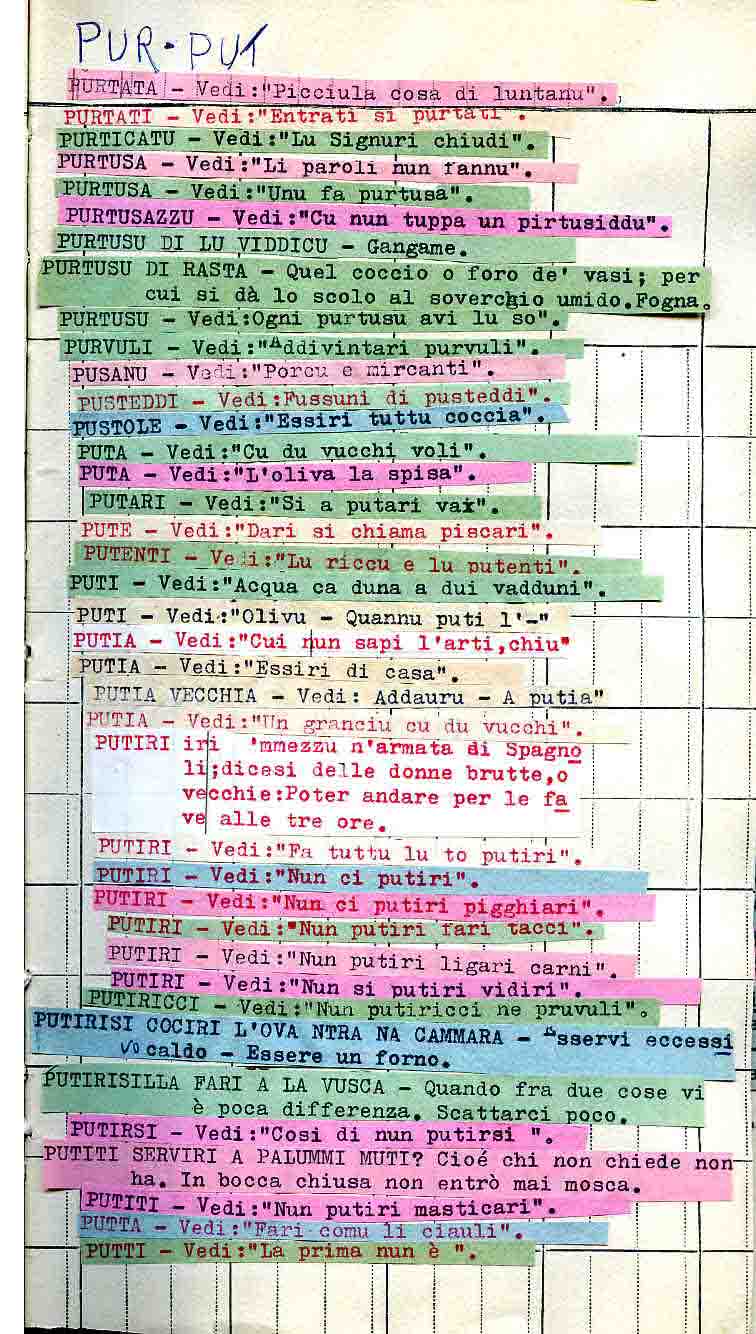 PUR-PUT
PURTATA - Vedi:"Picciula cosa di luntanu".
PURTATI - Vedi:"Entrati si purtati ".
PURTICATU - Vedi:"Lu Signuri chiudi".
PURTUSA - Vedi:"Li paroli nun fannu".
PURTUSA - Vedi:"Unu fa purtusa".
PURTUSAZZU - Vedi:"Cu nun tuppa un pirtusiddu".
PURTUSU DI LU VIDDICU - Gangame.
PURTUSU DI RASTA - Quel coccio o foro de' vasi; per
cui si dà lo scolo al soverchio umido.Fogna.
PURTUSU - Vedi:Ogni purtusu avi lu so".
PURVULI - Vedi:"Addivintari purvuli".
PUSANU - Vedi:"Porcu e mircanti".
PUSTEDDI - Vedi:Fussuni di pusteddi".
PUSTOLE - Vedi:"Essiri tuttu coccia".
PUTA - Vedi:"Cu du vucchi voli".
PUTA - Vedi:"L'oliva la spisa".
PUTARI - Vedi:"Si a putari vai".
PUTE - Vedi:"Dari si chiama piscari".
PUTENTI - Vedi:"Lu riccu e lu putenti".
PUTI - Vedi:"Acqua ca duna a dui vadduni".
PUTI - Vedi:"Olivu - Quannu puti l'-"
PUTIA - Vedi:"Cui nun sapi l'arti,chiu"
PUTIA - Vedi:"Essiri di casa".
PUTIA VECCHIA - Vedi: Addauru - A putia"
PUTIA - Vedi:"Un granciu cu du vucchi".
PUTIRI iri 'mmezzu n'armata di Spagno
li;dicesi delle donne brutte,o
vecchie:Poter andare per le fa
ve alle tre ore.
PUTIRI - Vedi:"Fa tuttu lu to putiri".
PUTIRI - Vedi:"Nun ci putiri".
PUTIRI - Vedi:"Nun ci putiri pigghiari".
PUTIRI - Vedi:"Nun putiri fari tacci".
PUTIRI - Vedi:"Nun putiri ligari carni".
PUTIRI - Vedi:"Nun si putiri vidiri".
PUTIRICCI - Vedi:"Nun putiricci ne pruvuli".
PUTIRISI COCIRI L'OVA NTRA NA CAMMARA - Asservi eccessi
vo caldo - Essere un forno.
PUTIRISILLA FARI A LA VUSCA - Quando fra due cose vi
è poca differenza. Scattarci poco.
PUTIRSI - Vedi:"Cosi di nun putirsi ".
PUTITI SERVIRI A PALUMMI MUTI? Cioé chi non chiede non
ha. In bocca chiusa non entrò mai mosca.
PUTITI - Vedi:"Nun putiri masticari".
PUTTA - Vedi:"Fari comu li ciauli".
PUTTI - Vedi:"La prima nun è ".